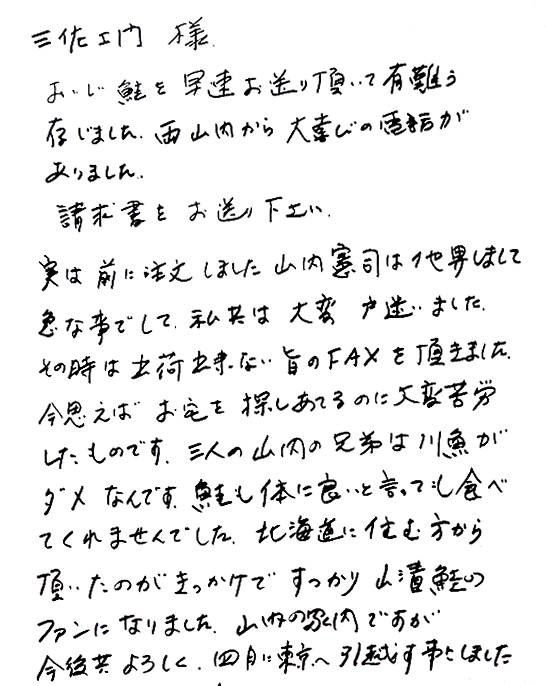 三佐エ門 様.
おいしい鮭を早速お送り頂いて有難う
存じました. 両山内から大喜びの電話が
ありました.
請求書をお送り下さい.
実は前に注文しました山内憲司は他界しまして
急な事でして. 私共は大変戸迷いました.
その時は出荷出来ない旨のFAXを頂きました.
今思えばお宅を探しあてるのに大変苦労
したものです. 三人の山内の兄弟は川魚が
ダメなんです. 鮭も体に良いと言っても食べ
てくれませんでした. 北海道に住む方から
頂いたのがきっかけですっかり山漬鮭の
ファンになりました. 山内の家内ですが
今後共よろしく. 四月に東京へ引越す事としました